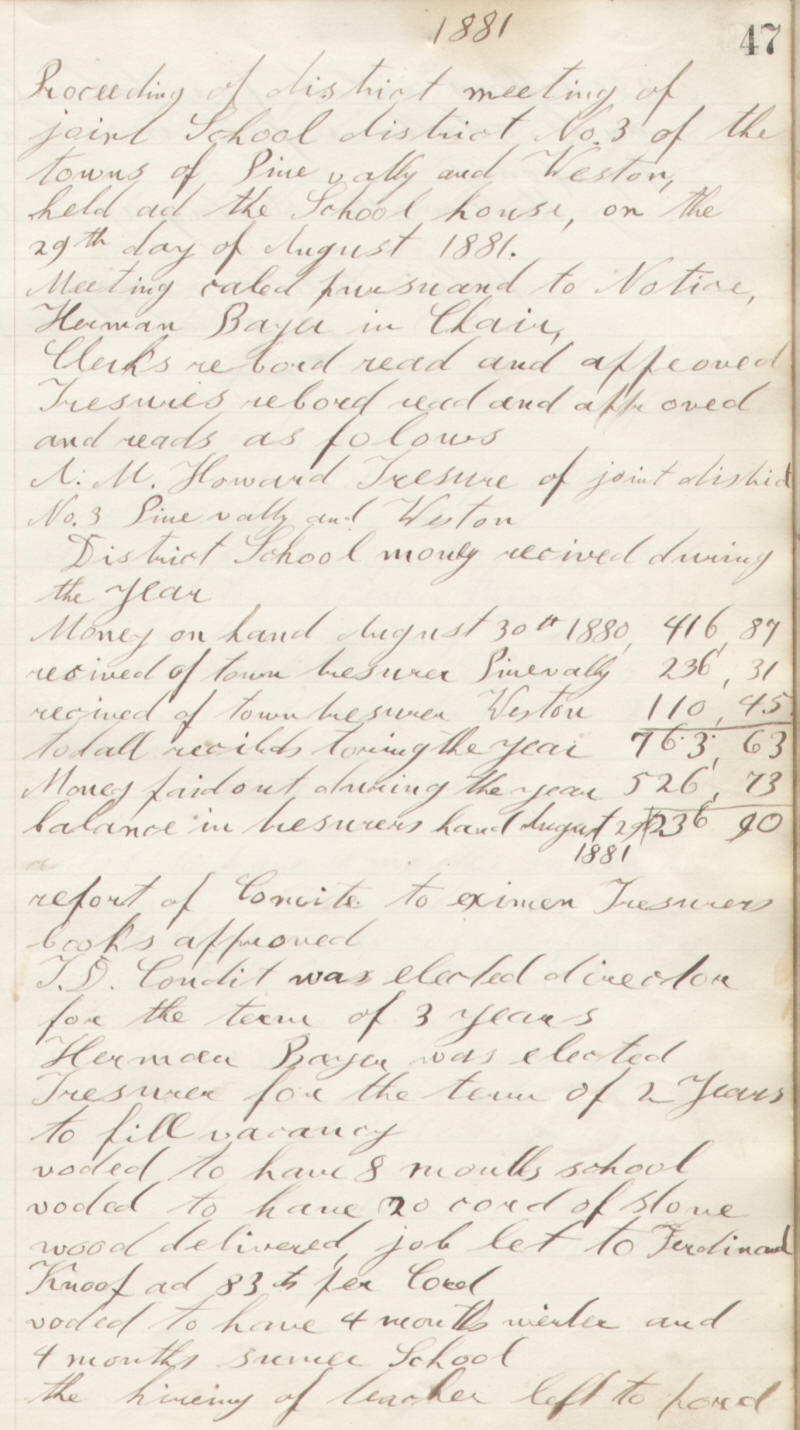 1881
47
Proceeding of district meeting of
joint School district No. 3 of the
towns of Pine vally and Weston,
held ad the School house, on the
29th day of August 1881.
Meeting caled pursuand to Notice,
Herman Bayer in Chair,
Clerks rebord read and approved
Tresures rebord read and approved
and reads as folows
N. M. Howard Tresure of joint district
No. 3 Pine vally and Weston
District School money recived during
the year
Money on hand August 30th 1880, 416, 87
recived of town tresurer Pinevally 236, 31
recived of town tresurer Weston 110, 45
todall during the year 763, 63
Money paid out during the year 526, 73
balance in tresurers hand August 29 236 90
1881
report of Comite to eximen Tresurers
books approved
T.D. Condit was elected director
for the term of 3 years
Herman Bayer was elected
Tresurer for the term of 2 Years
to fill vacancy
voded to have 8 months school
voded to have 20 cord of stove
wood delivered, job let to Ferdinand
Knoof ad 83 cts per Cord
voded to have 4 months winter and
4 months sumer School
the hireing of teacher left to bord